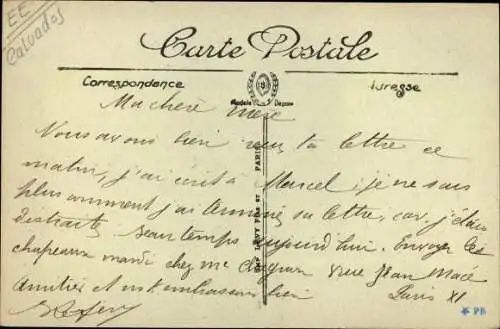 EE
Calvados
Carte Postale
Correspondance
Adresse
Modèle Déposé
Ma chère mère
Vous avons bien reçu ta lettre ce
matin, j'ai écrit à Marcel, je ne sais
plus comment j'ai terminé sa lettre, car j'étais
distraite, beau temps aujourd'hui. Envoyer les
chapeaux mardi chez me rue Jean Macé
Amitiés et embrassons bien Paris XI
LEVY FILS ET PARIS
* PB